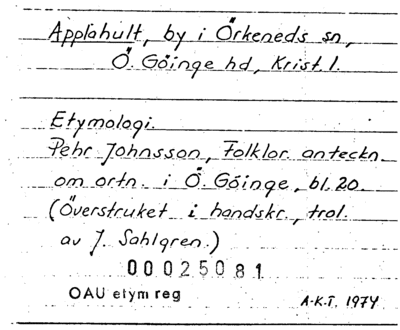 Applahult, by i Örkeneds sn,
Ö. Göinge hd, Krist. l.
Etymologi.
Pehr Johnsson, Folklor. anteckn.
om ortn. i Ö. Göinge, bl. 20.
(Överstruket i handskr., trol.
av J. Sahlgren.)
00025081
OAU etym reg
A.K.T. 1974